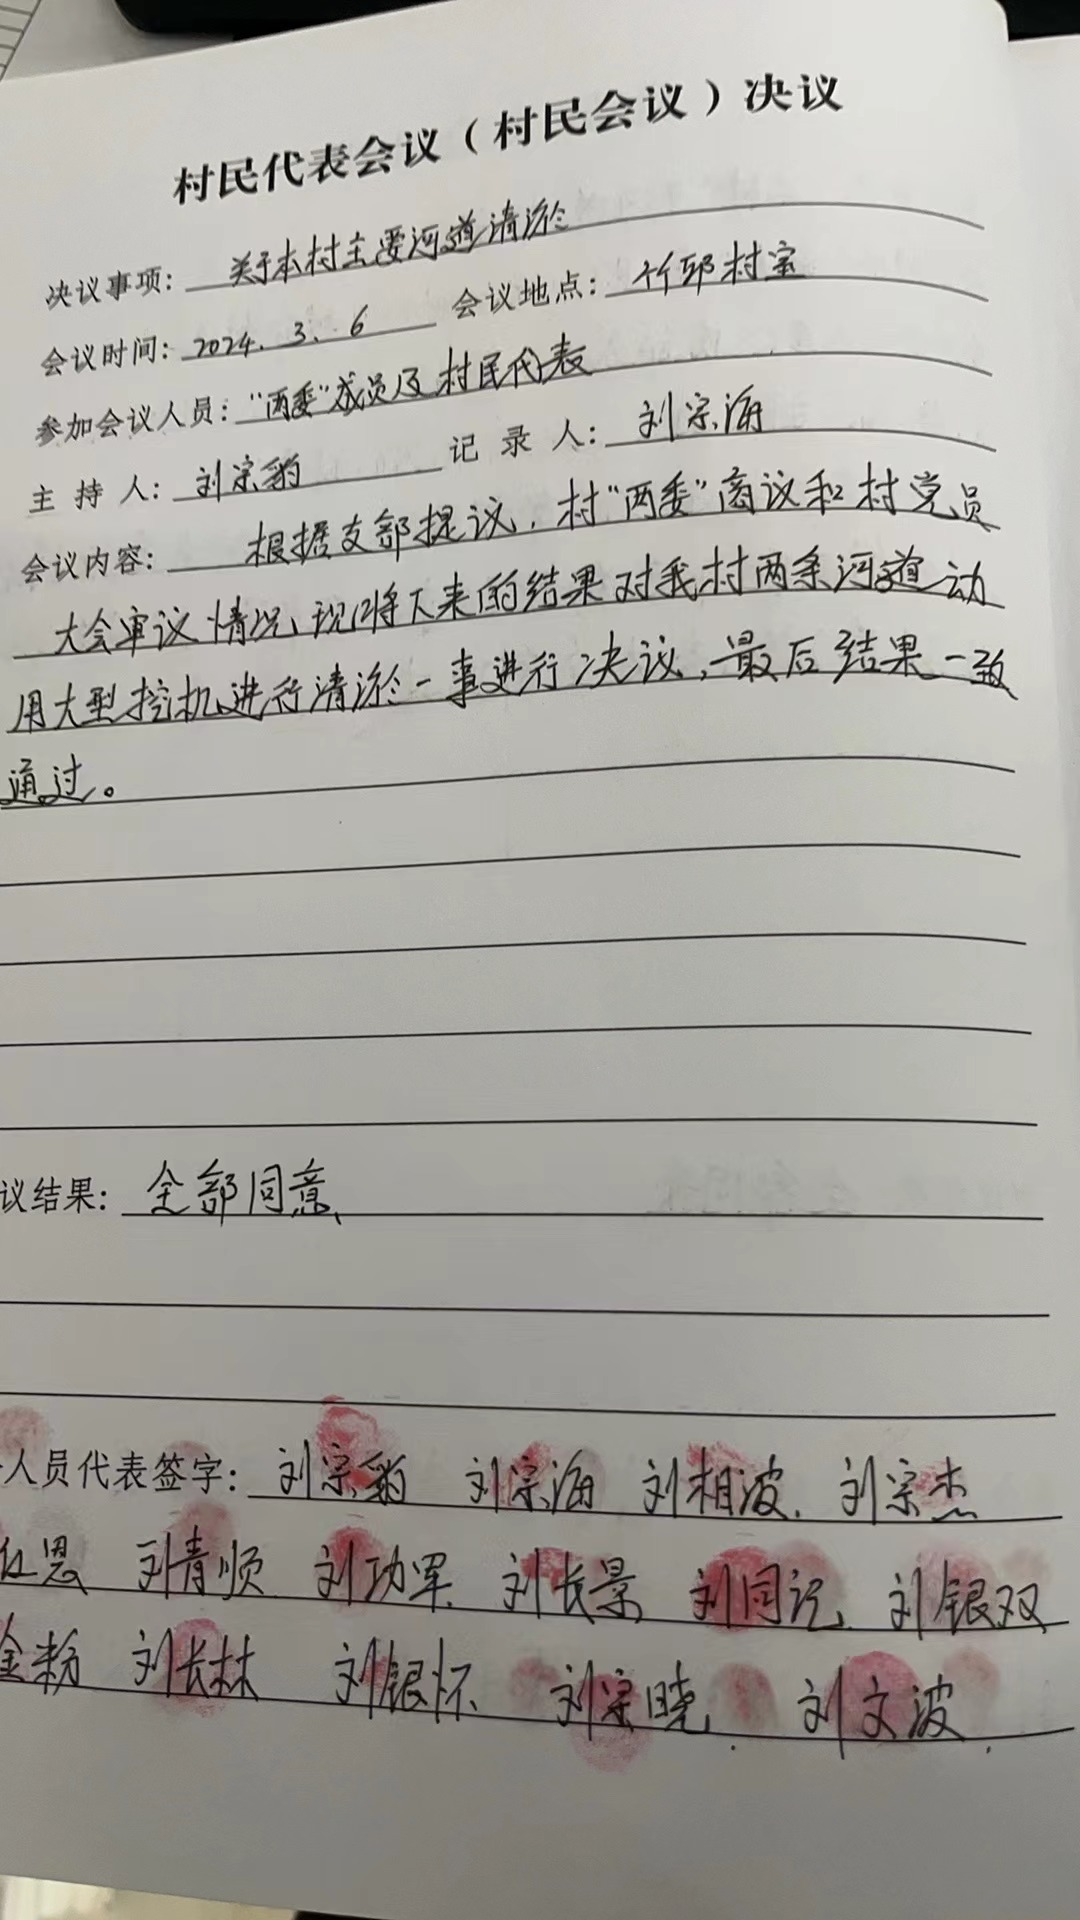 村民代表会议（村民会议）决议
决议事项： 关于本村主要河道清淤
会议时间： 2024.3.6 会议地点： 竹邱村室
参加会议人员： “两委”成员及村民代表
主 持 人： 刘宗豹 记 录 人： 刘宗海
会议内容： 根据支部提议，村“两委”商议和村党员
大会审议情况，现将下来的结果对我村两条河道动
用大型挖机进行清淤一事进行决议，最后结果一致
通过。
议结果： 全部同意、
人员代表签字： 刘宗豹 刘宗海 刘相波. 刘宗杰
红恩 刘青顺 刘功军. 刘长景 刘同记. 刘银双
金粉 刘长林 刘银怀 刘宗晓. 刘文波.